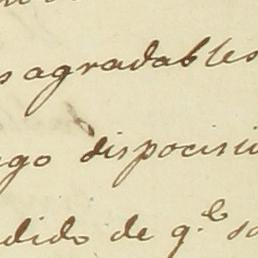 s agradables
go dispocisi
dido de q.e so